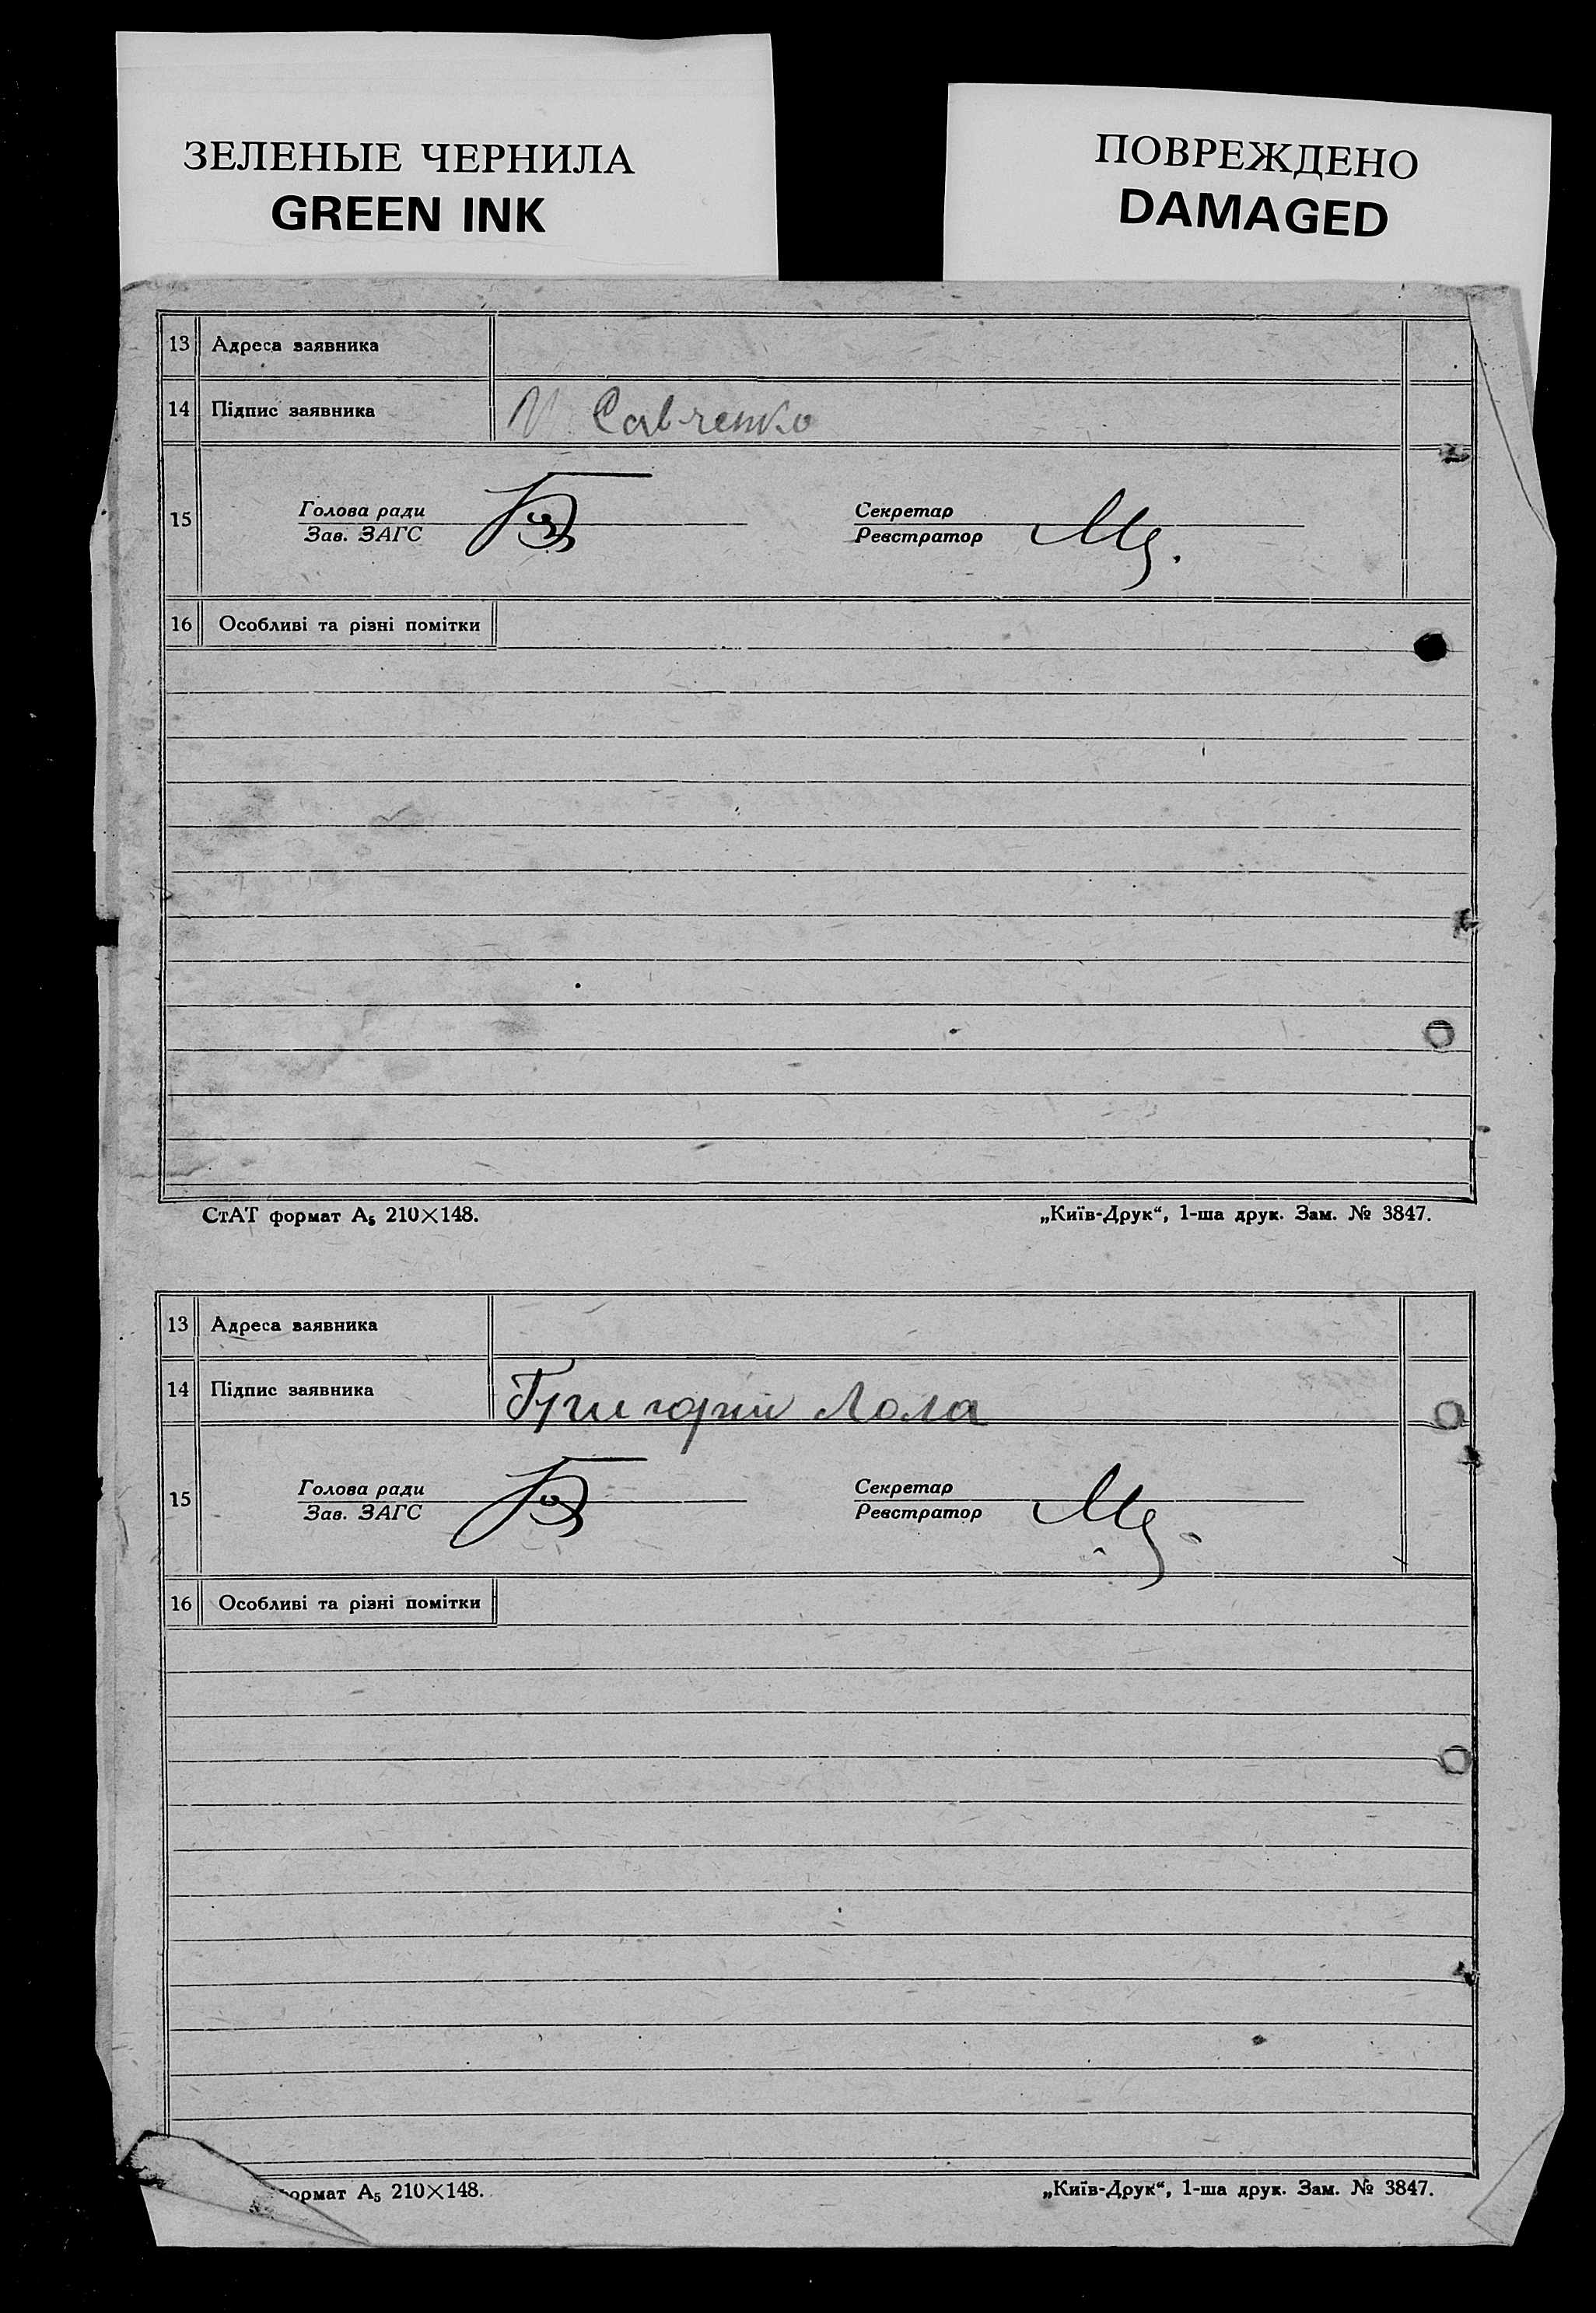 ЗЕЛЕНЫЕ ЧЕРНИЛА
GREEN INK
ПОВРЕЖДЕНО
DAMAGED
13 Адреса заявника
14 Підпис заявника Савченко
15 Голова ради
Зав. ЗАГС
Секретар
Реєстратор
16 Особливі та різні помітки
СтАТ формат А₅ 210×148.
„Київ-Друк“, 1-ша друк. Зам. № 3847.
13 Адреса заявника
14 Підпис заявника Григорий Лола
15 Голова ради
Зав. ЗАГС
Секретар
Реєстратор
16 Особливі та різні помітки
ормат А₅ 210×148.
„Київ-Друк“, 1-ша друк. Зам. № 3847.